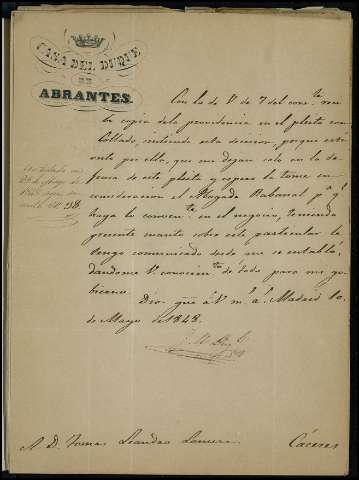 CASA DEL DUQUE
DE
ABRANTES.
Con la de V. de 7 del corr.te
la copia de la providencia en el pleito con
Collado, sintiendo esta decision, porque
por ella, que me dejan solo en la de
fensa de este pleito y espero la tome en
consideracion el Abogado Rabanal p.a q.e
haga lo conven.te en el negocio, teniendo
presente cuanto sobre este particular le
tengo comunicado desde que se entabló,
dandome V. conocim.to de todo para mi go
bierno.
Dios gue á V. m.s a.s Madrid 10
de Mayo de 1848.
Contestada en
de Mayo de
1848
A. D. Tomas Leandro
Cáceres